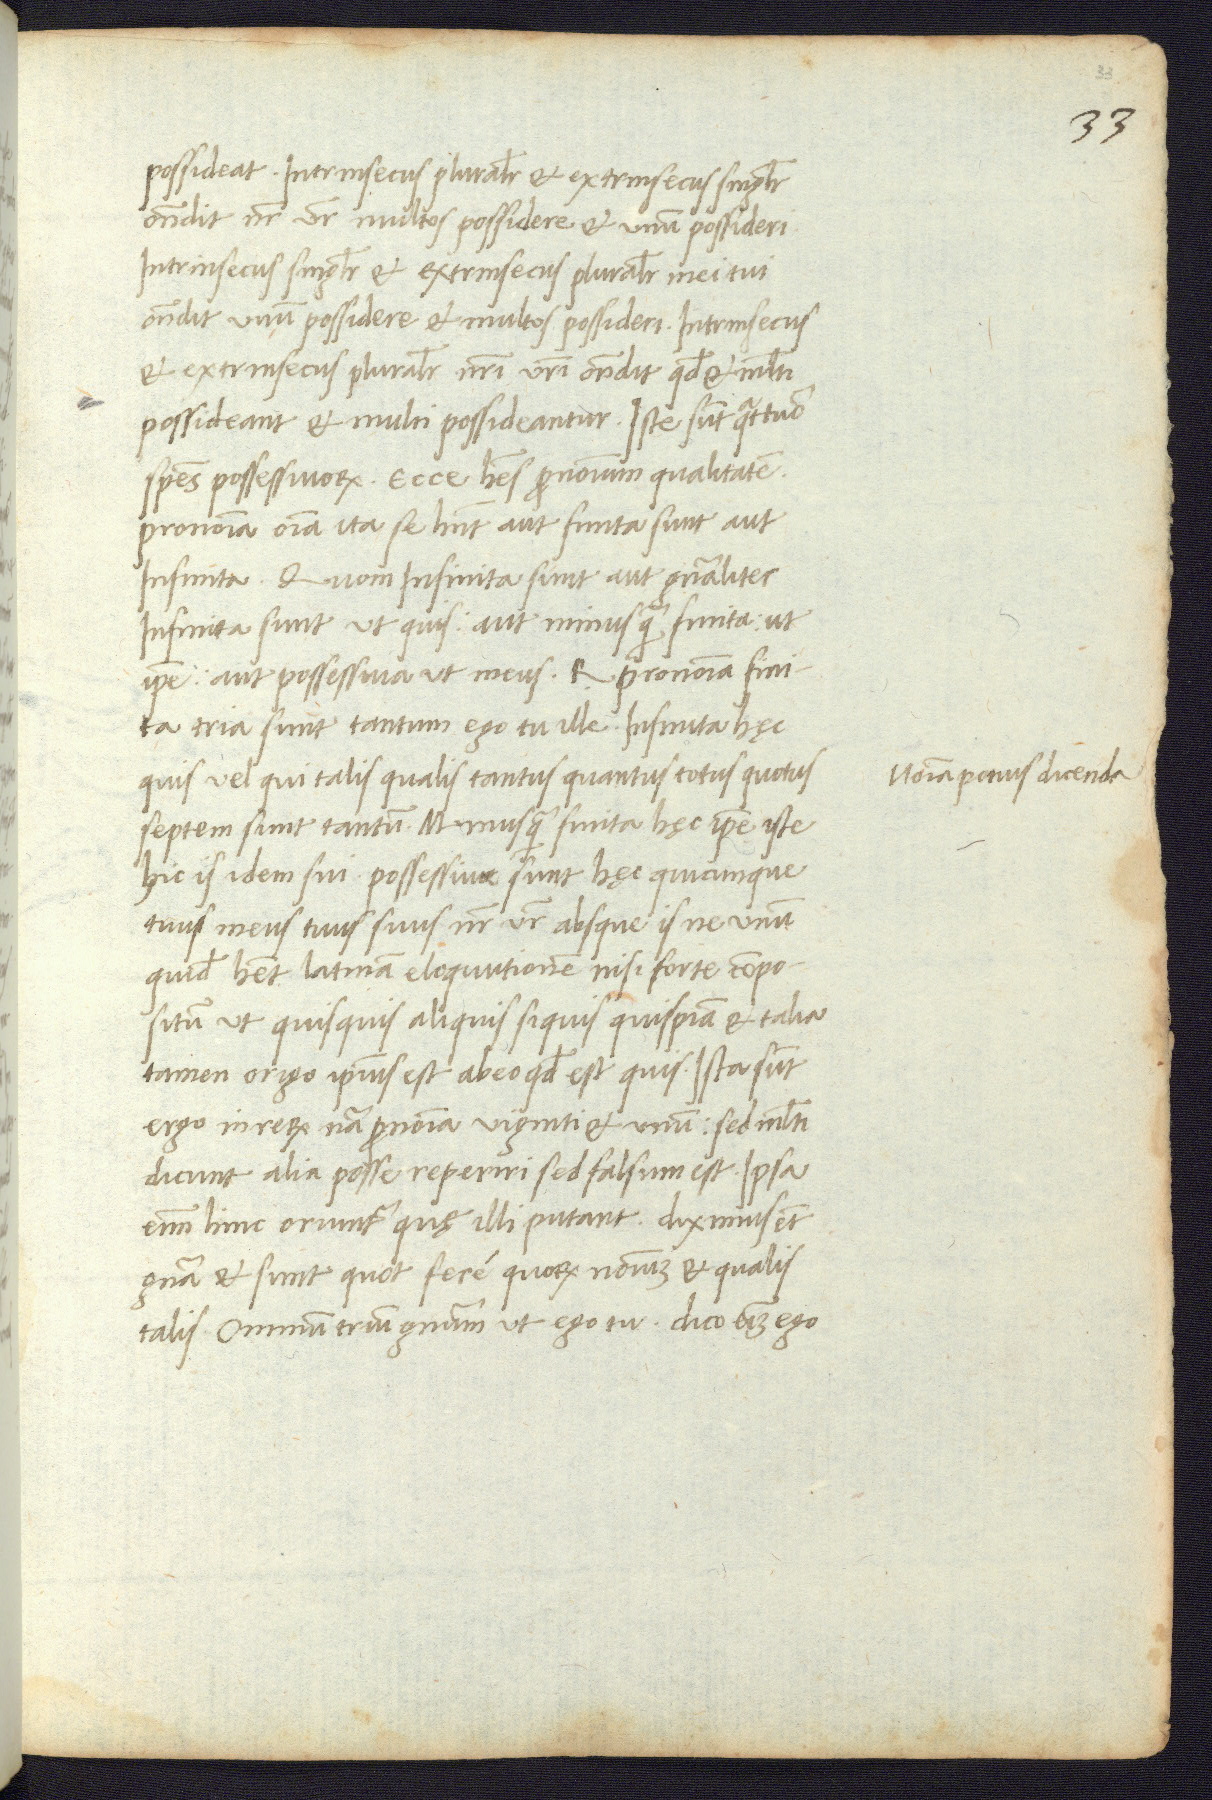 33
33
possideat. Intrinsecus pluralr̄ & extrinsecus singlr̄
on̄dit nr̄ vr̄ multos possidere & vnū possideri.
Intrinsecus singlr̄ & extrinsecus pluralr̄ mei tui
on̄dit vnū possidere & multos possideri. Intrinsecus
& extrinsecus pluralr̄ nr̄i vr̄i on̄dit qđ & ml̄ti
possideant & multi possideantur. Iste sūt q̄ttuor
spēs possessiuoꝝ. Ecce hēs pronoīum qualitatē.
pronoīa oīa ita se hn̄t aut finita sunt aut
Infinita. Quom Infinita sunt aut gn̄aliter
Infinita sunt vt quis: aut minusq̄ finita: ut
ip̄e: aut possessiua vt meus. R pronoīa fini-
ta tria sunt tantum ego tu ille. Infinita hęc
quis vel qui talis qualis tantus quantus totus quotus
Noīa potius dicenda
septem sunt tantū. Minusq̄ finita hęc ip̄e iste
hic is idem sui. possessiua sunt hęc quicunque
tuus meus tuus suus nr̄ vr̄ absque is ne vnū
quid hēt latinā eloquutionē nisi forte cōpo-
sitū vt quisquis aliquis siquis quispiā & talia
tamen origo ip̄ius est ab eo qđ est quis. Ista sūt
ergo in reꝝ nā pronoīa viginti & vnū: sed ml̄ti
dicunt alia posse reperiri sed falsum est. Ipsa
enī hinc oriunt̄ quę illi putant. diximus et̄
gn̄a & sunt quot feré quoꝝ noīuꝫ & qualis
talis. Omniū triū gn̄um vt ego tu. dico eīꝫ ego